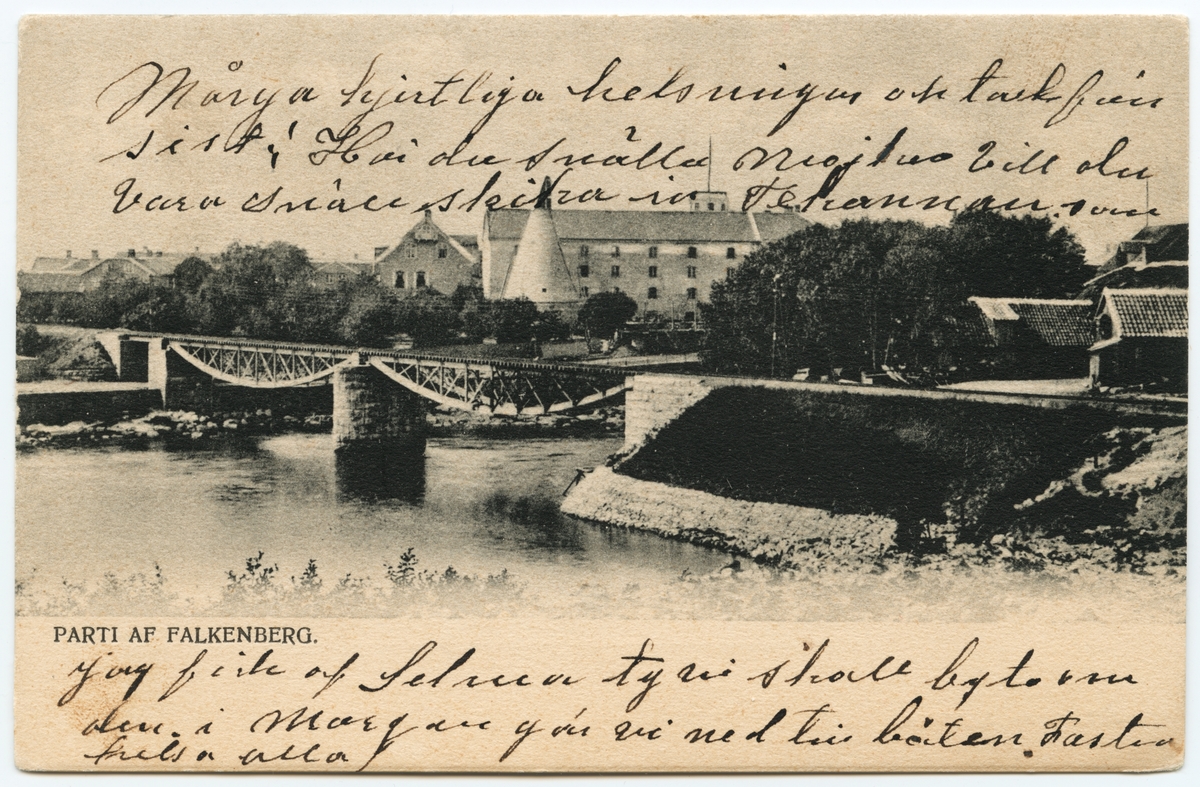 Många hjertliga helsningar ok tack för
sist; Hör du snälla Mojho vill du
vara snäll skika in Tekannan som
PARTI AF FALKENBERG.
jag fik af Selma ty vi skall byta om
den. i Morgan går vi ned till båten. Faster
helsa alla